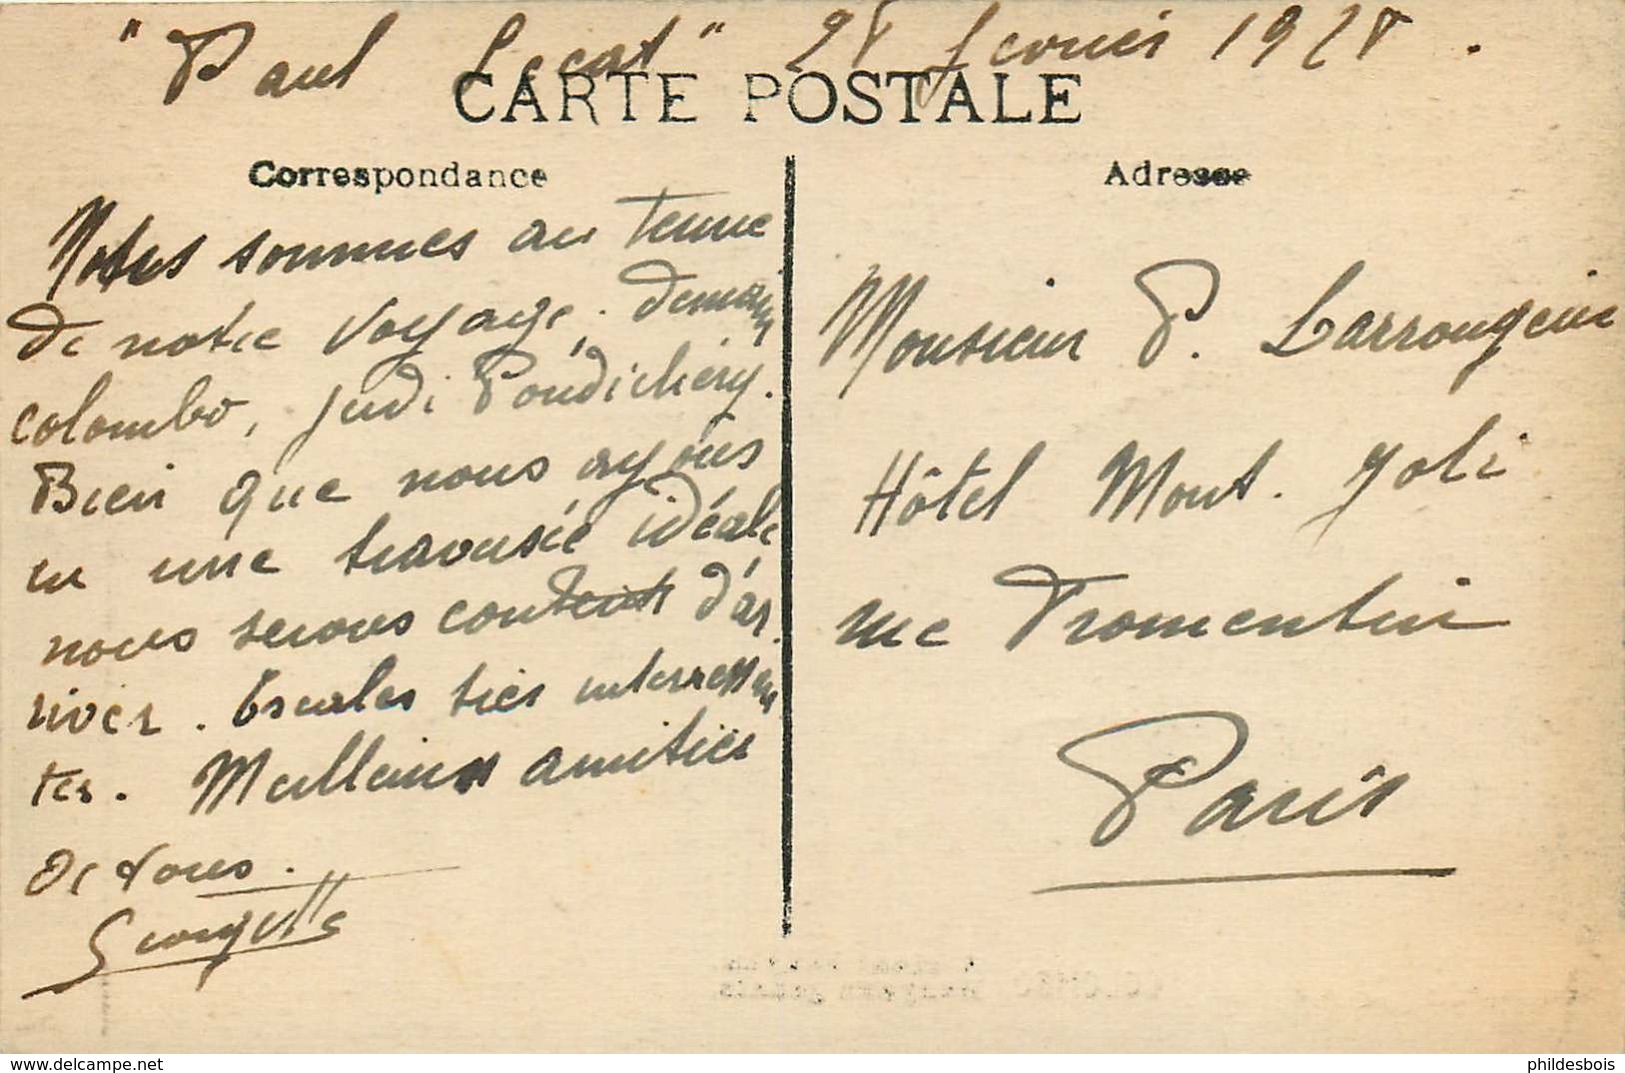 "Paul Lecat" 28 février 1928.
CARTE POSTALE
Correspondance
Nous sommes au terme
de notre voyage, demain
colombo, jeudi Pondichéry.
Bien que nous ayons
eu une traversée idéale
nous serons contents d'ar
river. Escales très interressan
tes. Meilleures amitiés
de tous.
Georgette
Adresse
Monsieur P.
Hôtel Mont-Joli
rue Fromentin
Paris
delcampe.net
phildesbois